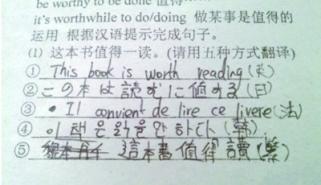 be worthy to be done 值得
it's worthwhile to do/doing 做某事是值得的
运用 根据汉语提示完成句子。
(1) 这本书值得一读。(请用五种方式翻译)
① This book is worth reading (英)
② この本は読むに値する (日)
③ Il convient de lire ce livere (法)
④ 이 책은 읽을 만 하다 (韩)
⑤ 這本書 值得 讀 (繁)